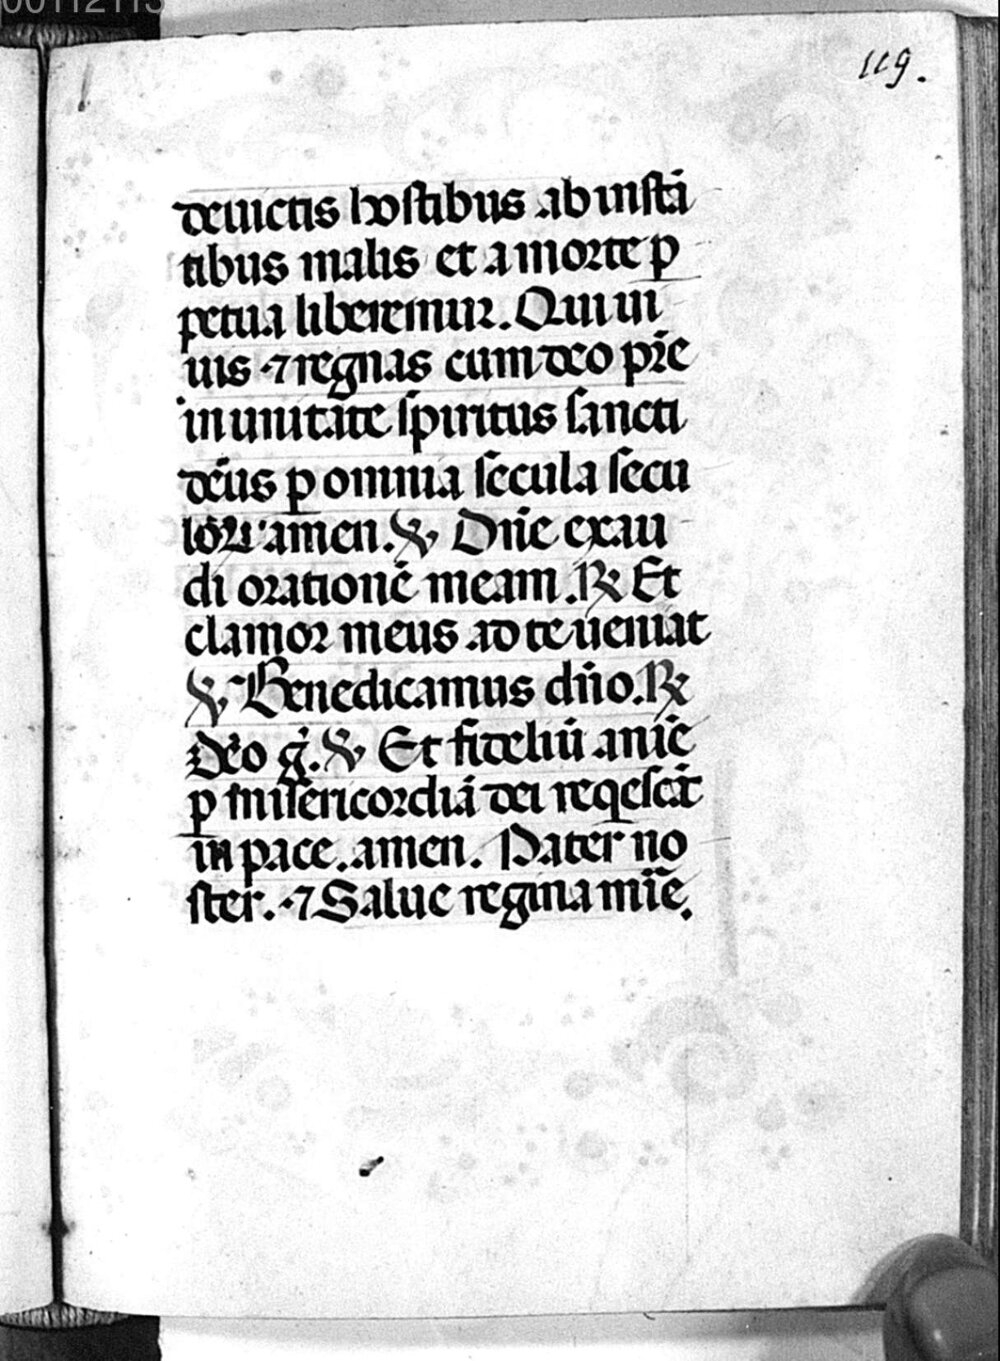 119.
deuictis hostibus ab instā
tibus malis et a morte ꝑ
petua liberemur. Qui ui
uis ⁊ regnas cum deo pr̄e
in unitate spiritus sancti
deus ꝑ omnia secula secu
loꝝ amen. ℣ Dn̄e exau
di orationē meam. ℟ Et
clamor meus ad te ueniat
℣ Benedicamus dn̄o. ℟
Deo g̃. ℣ Et fideliū anīe
ꝑ misericordiā dei reqescāt
in pace. amen. Pater no
ster. ⁊ Salue regina mīe.